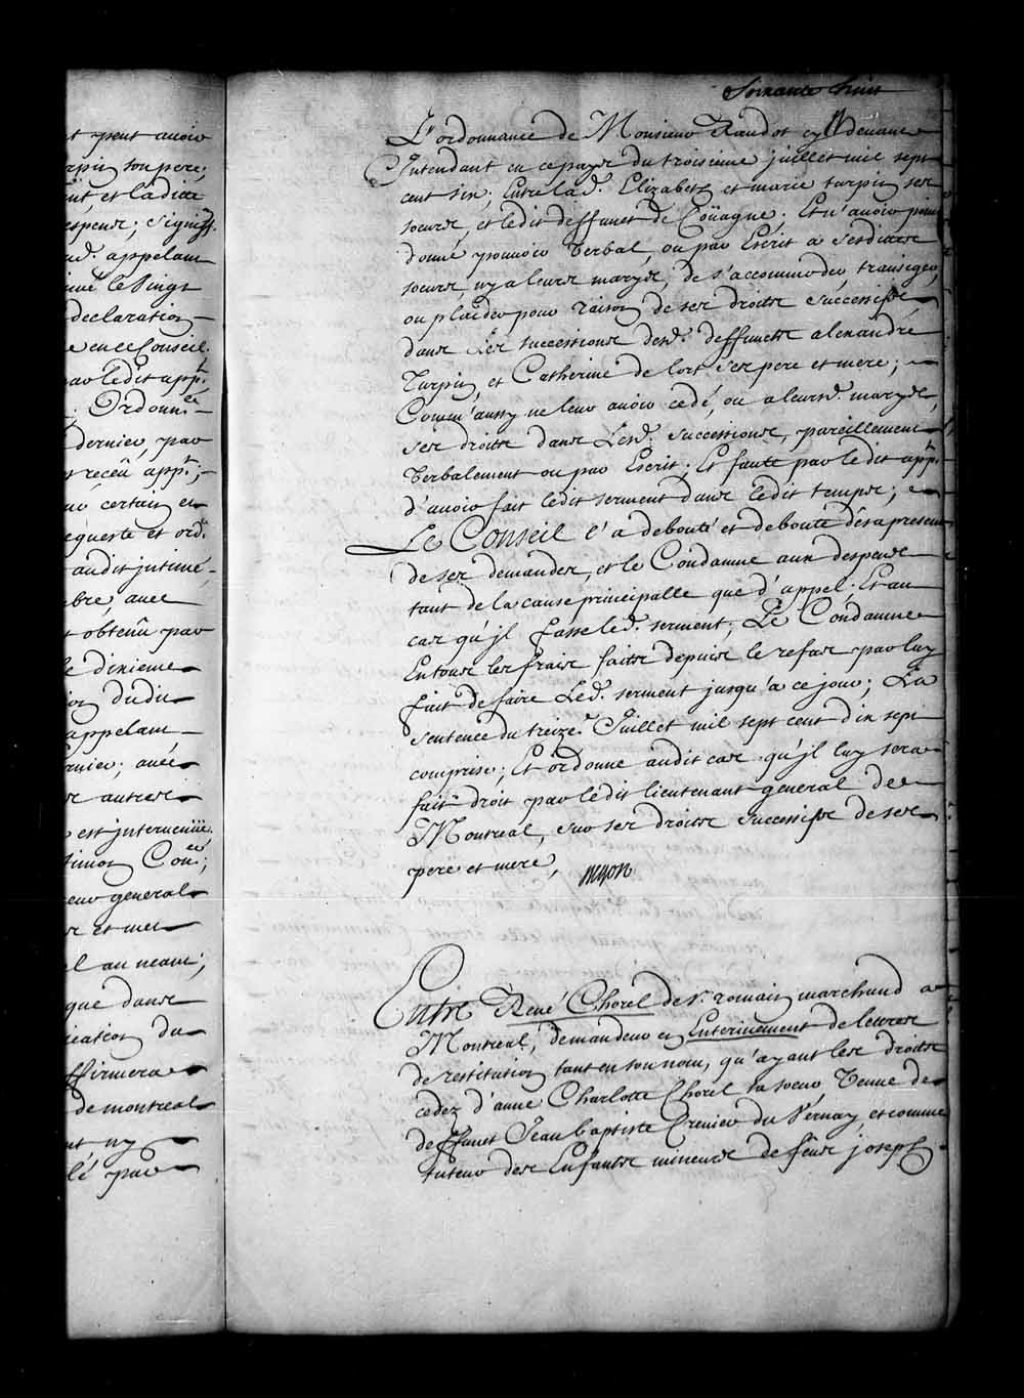 t peut avoir
rpin son pere;
int, et ladite
espens; signiff.
ned. appelant
imé le vingt
declaration
e en ce Conseil;
par ledit appt.
Ordonnce
dernier, par
t receu appt;
certain en
equeste et ord.
audit jntimé,
bre, avec
t obtenû par
le dixieme
on dudit
appelant
rnier; avec
x autres
est jntervenüe.
Simon Coner;
eur general
x et met
el au neant;
que dans
ication du
ffirmera
de montreal
nt ny
lé par
Soixante huit
L'ordonnance de Monsieur Raudot cy devant
Intendant en ce pays du troisieme juillet mil sept
cent six; Entre lad. Elizabeth et marie turpin ses
soeurs, et ledit deffunct de Coüagne; Et n'avoir point
donné pouvoir Verbal, ou par Escrit a sesdittes
soeurs, ny a leurs marys, de s'accommoder, transiger,
ou plaider pour raison de ses droits successifs
dans les successions desd. deffuncts alexandre
Turpin, et Catherine de lort ses pere et mere;
Comm' aussy ne leur avoir cedé, ou a leursd. marys,
ses droits dans Lesd. successions, pareillement
Verbalement ou par Escrit; Et faute par ledit appt.
d'avoir fait ledit serment dans ledit temps;
Le Conseil l'a debouté et deboute dès a present
de ses demandes, et le Condamne aux despens
tant de la cause principalle que d'appel; Et au
cas qu'jl fasse led. serment; Le Condamne
En tous les frais faits depuis le refus par luy
fait de faire Led. serment jusqu'a ce jour; La
sentence du treize. Juillet mil sept cent dix sept
comprise; Et ordonne audit cas qu'jl luy sera
fait droit par ledit lieutenant general de
Montreal, sur ses droits successifs de ses
pere et mere,
Entre René Chorel de St. romain marchand a
Montreal, demandeur en Enterinement de lettres
de restitution tant en son nom, qu'ayant les droits
cedez d'anne Charlotte Chorel sa soeur Veuve de
deffunct Jean baptiste Crevier du Vernay, et comme
tuteur des Enfants mineurs de feus joseph